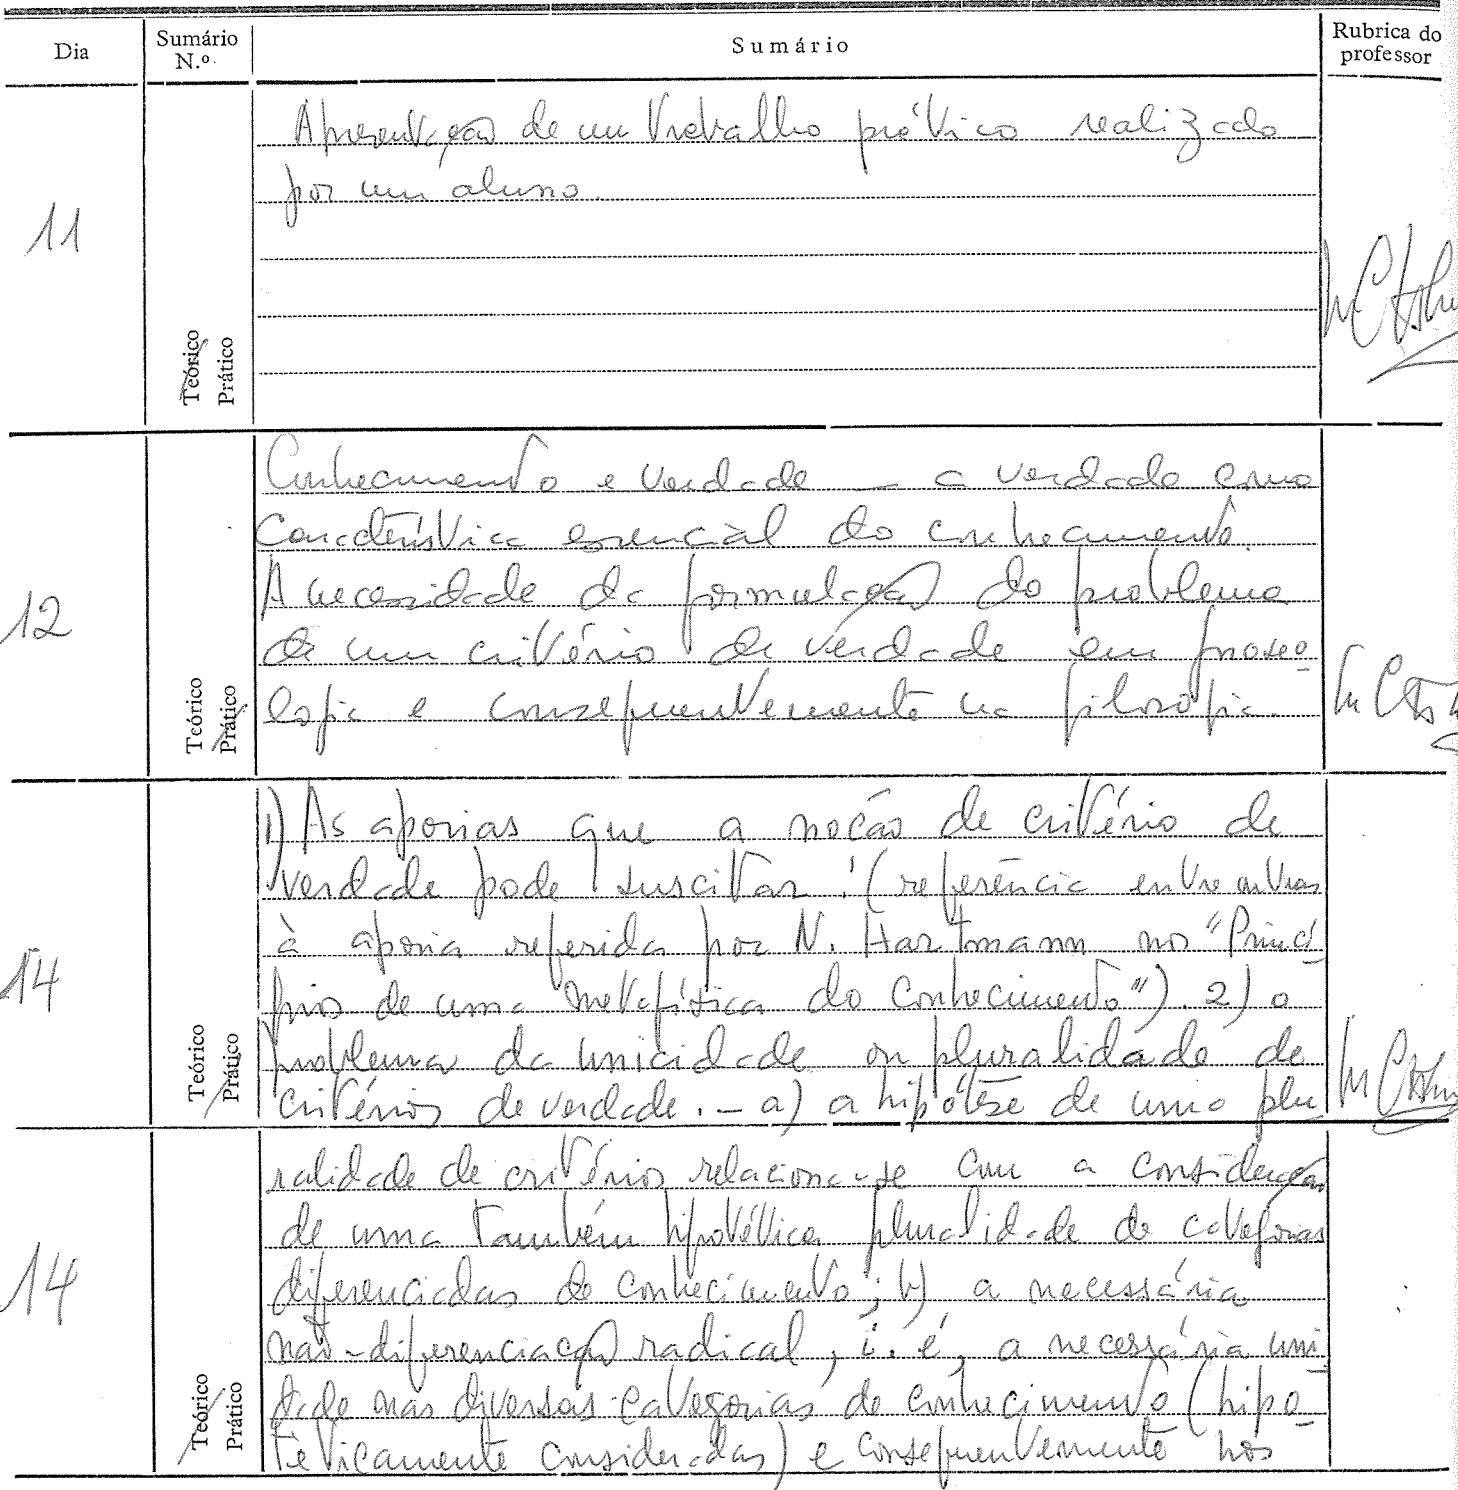 Dia
Sumário N.º
Sumário
Rubrica do professor
11
Teórico
Prático
Apresentação de um trabalho prático realizado
por um aluno.
12
Teórico
Prático
Conhecimento e verdade — a verdade como
característica essencial do conhecimento.
A necessidade da formulação do problema
de um critério de verdade em gnoseo-
logia e consequentemente na filosofia.
14
Teórico
Prático
1) As aporias que a noção de critério de
verdade pode suscitar: (referência entre outras
à aporia referida por N. Hartmann nos "Princí-
pios de uma metafísica do conhecimento"). 2) o
problema da unicidade ou pluralidade de
critérios de verdade. — a) a hipótese de uma plu
14
Teórico
Prático
ralidade de critérios relaciona-se com a consideração
de uma também hipotética pluralidade de categorias
diferenciadas de conhecimento; b) a necessária
não-diferenciação radical, i. é, a necessária uni-
dade nas diversas categorias de conhecimento (hipo-
teticamente consideradas) e consequentemente nos